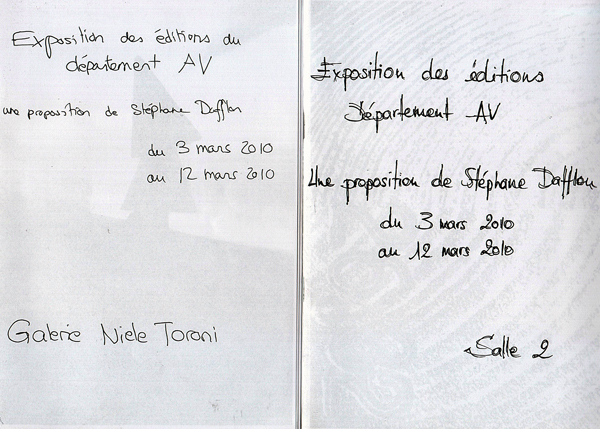 Exposition des éditions du
département AV
une proposition de Stéphane Dafflon
du 3 mars 2010
au 12 mars 2010
Galerie Niele Toroni
Exposition des éditions
Département AV
Une proposition de Stéphane Dafflon
du 3 mars 2010
au 12 mars 2010
Salle 2